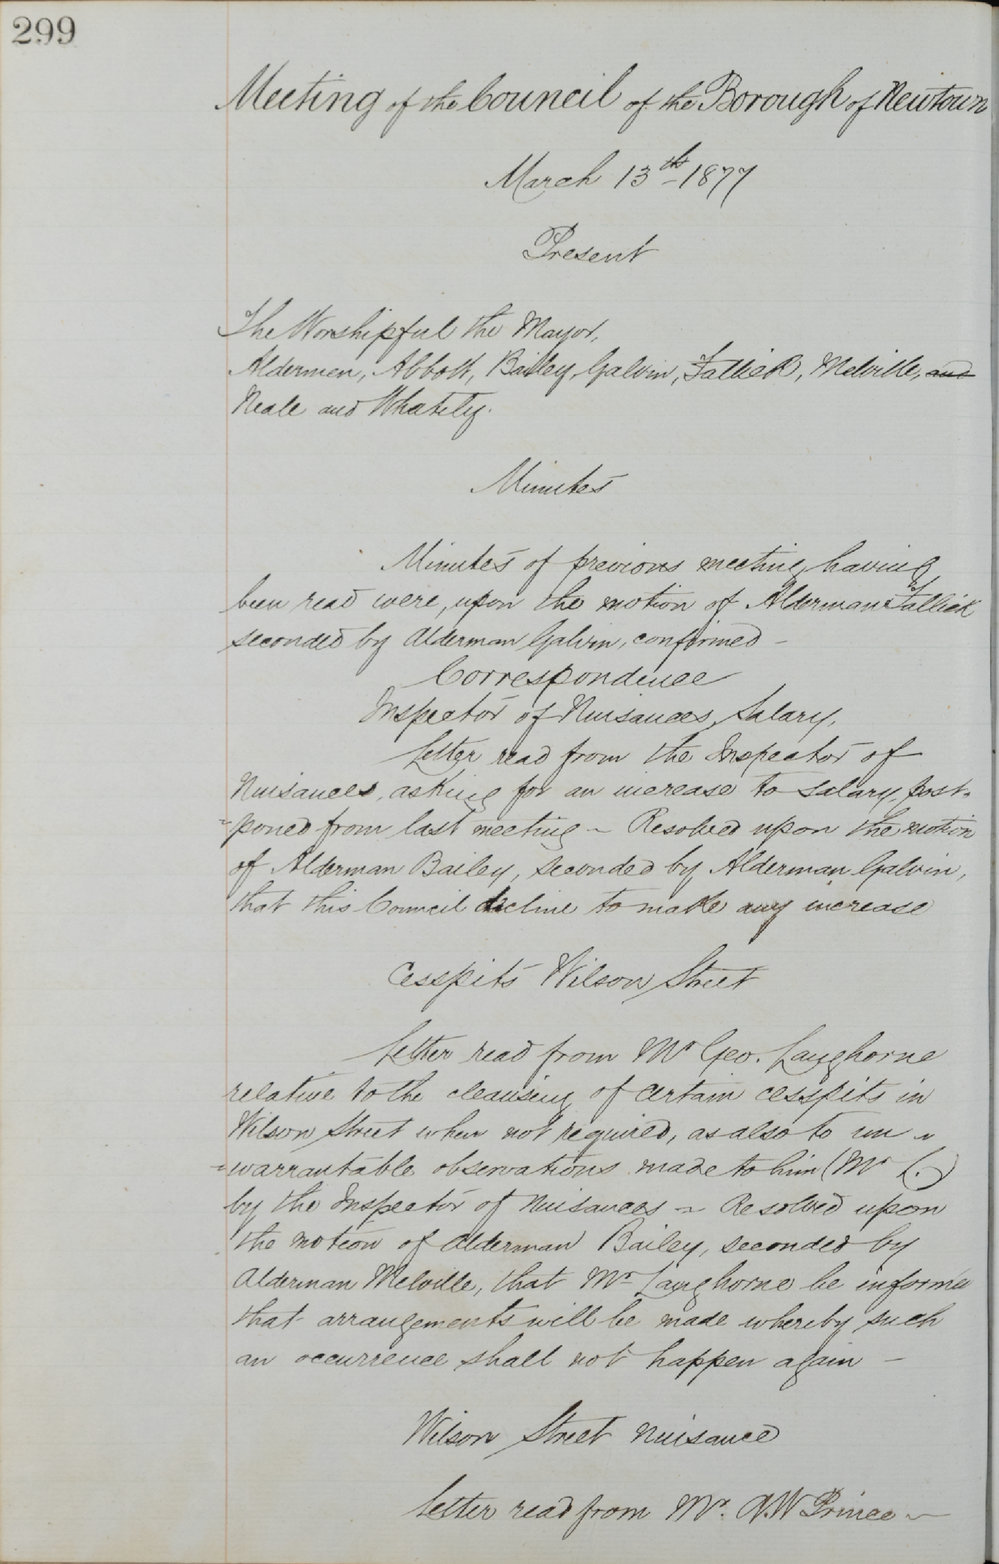 299
Meeting of the Council of the Borough of Newtown
March 13th - 1877
Present
The Worshipful the Mayor,
Aldermen, Abbott, Bailey, Galvin, Fallick, Melville, and
Neale and Whately.
Minutes
Minutes of previous meeting having
been read were, upon the motion of Alderman Fallick
seconded by Alderman Galvin, confirmed -
Correspondence
Inspector of Nuisances, Salary,
Letter read from the Inspector of
Nuisances, asking for an increase to salary, post-
=poned from last meeting ~ Resolved upon the motion
of Alderman Bailey, seconded by Alderman Galvin,
that this Council decline to make any increase
Cesspits Wilson Street
Letter read from Mr Geo. Langhorne
relative to the cleansing of certain cesspits in
Wilson Street when not required, as also to un =
=warrantable observations made to him (Mr L.)
by the Inspector of Nuisances ~ Resolved upon
the motion of Alderman Bailey, seconded by
Alderman Melville, that Mr Langhorne be informed
that arrangements will be made whereby such
an occurrence shall not happen again -
Wilson Street Nuisance
Letter read from Mr. A.W Prince ~